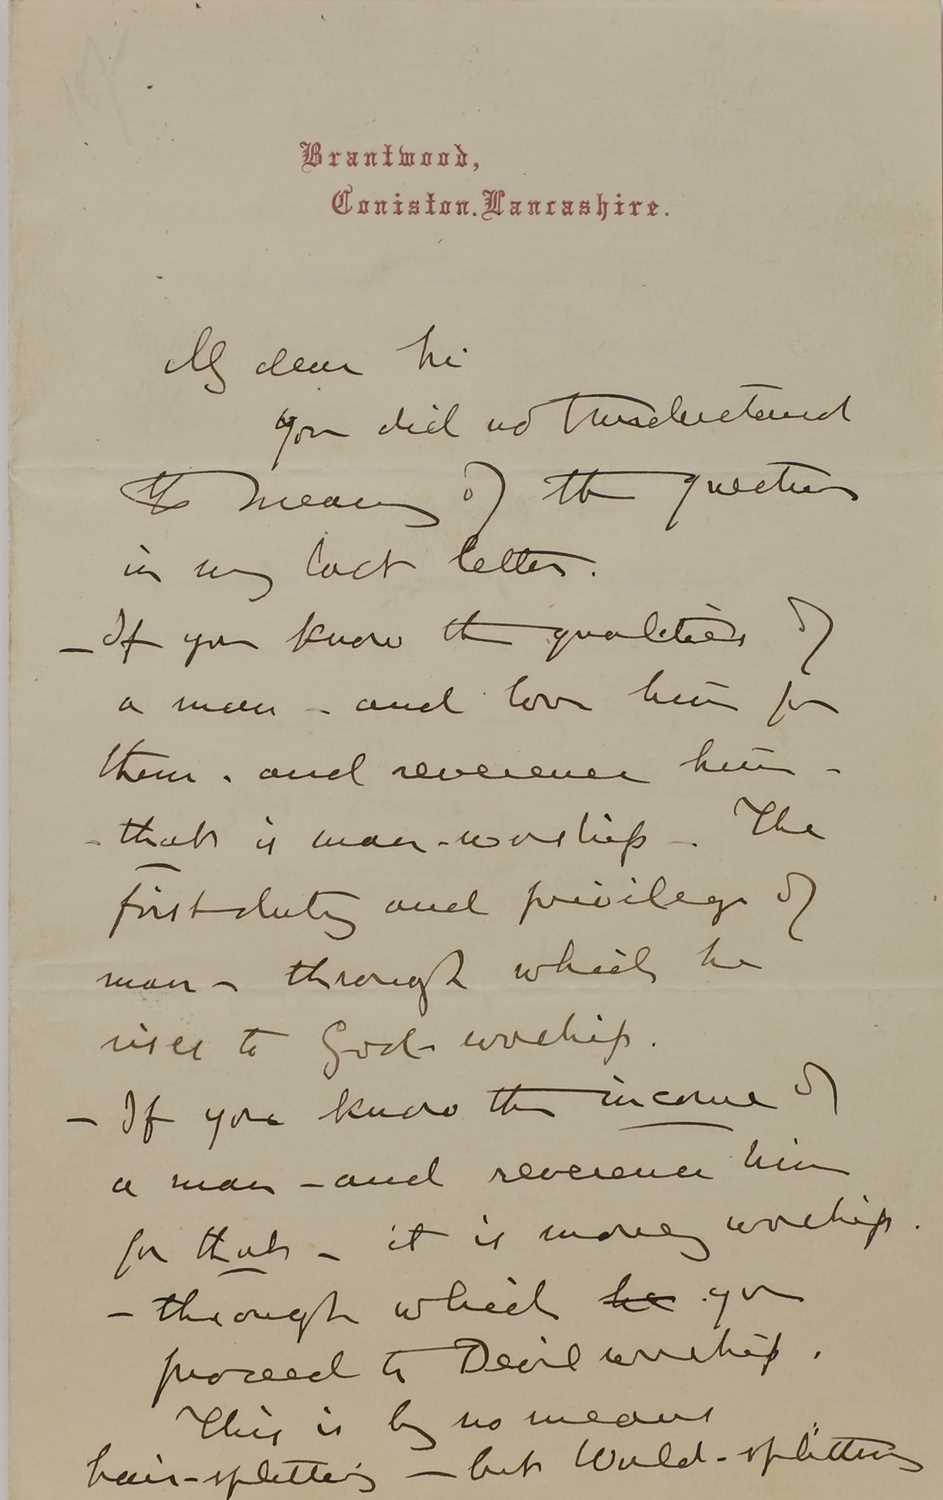 Brantwood,
Coniston. Lancashire.
My dear Sir
You did not understand
the meaning of the question
in my last letter.
– If you know the qualities of
a man – and love him for
them. and reverence him –
– that is man-worship –. The
first duty and privilege of
man – through which he
rises to God-worship.
– If you know the income of
a man – and reverence him
for that – it is money worship.
– through which he you
proceed to Devil worship.
This is by no means
hair-splitting – but World-splitting